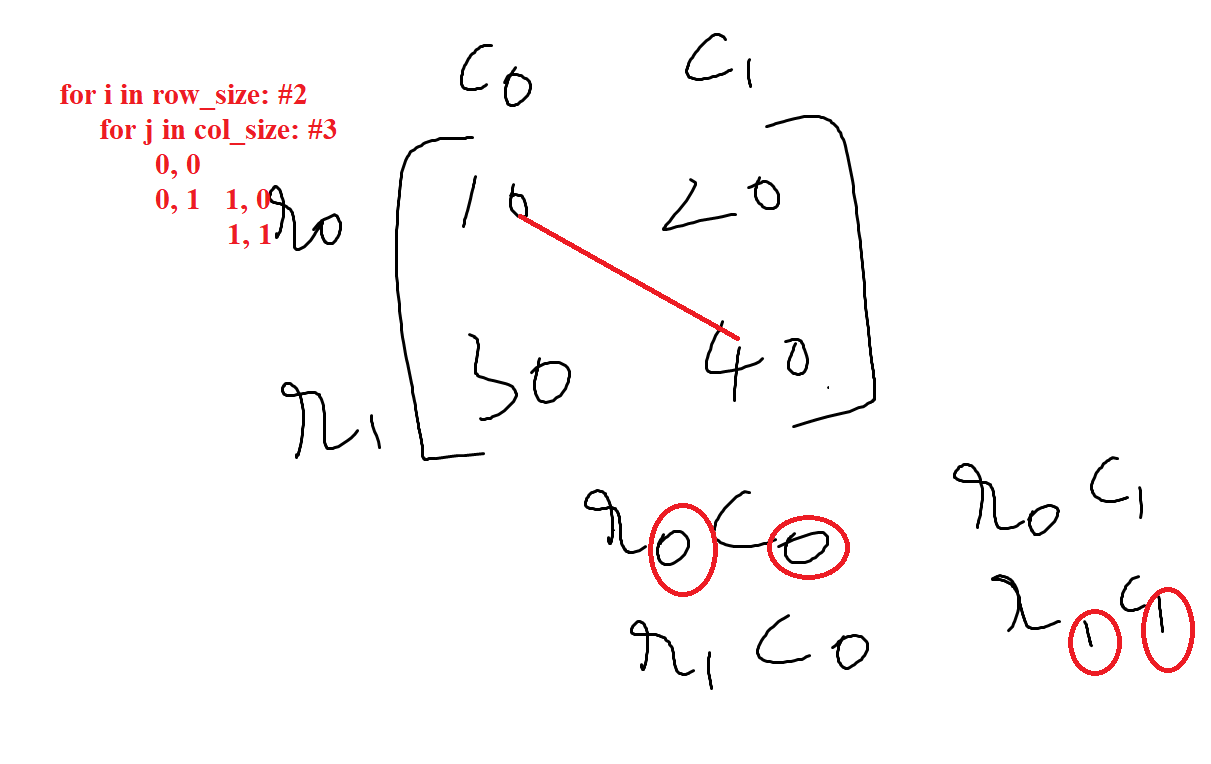 c0 c1
for i in row_size: #2
for j in col_size: #3
0, 0
0, 1 1, 0
1, 1
r0 10 20
r1 30 40
r0 c0 r0 c1
r1 c0 r1 c1